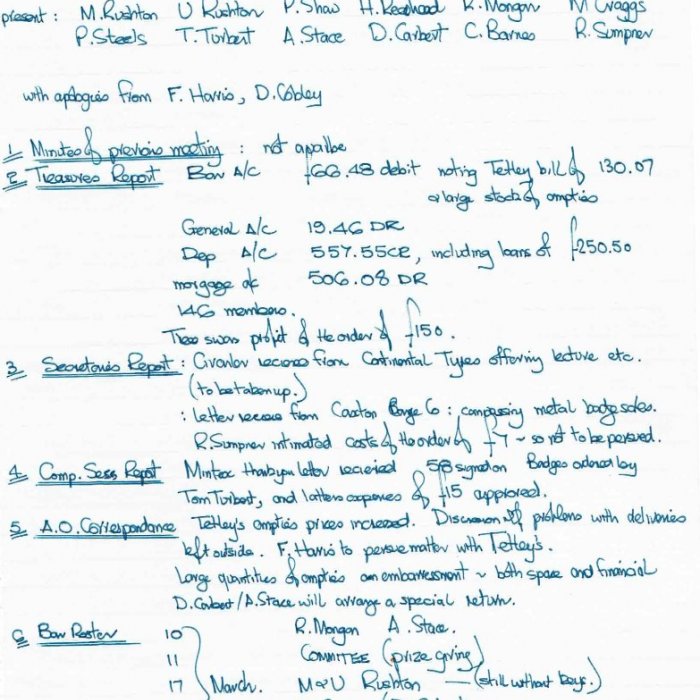 present : M.Rushton U Rushton P.Shaw H.Readhead R.Morgan M Craggs
P.Steels T.Turbert A.Stace D.Carbert C.Barnes R.Sumpner
with apologies from F. Harris, D.Cobley
1 Minutes of previous meeting : not availbe
2 Treasures Report Bar A/C £66.48 debit noting Tetley bill of 130.07
& large stock of empties
General A/C 19.46 DR
Dep A/C 557.55CR, including loans of £250.50
morgage a/c 506.08 DR
146 members.
Tree swan profit of the order of £150.
3 Secretaries Report : Circular recieved from Continental Tyres offering lecture etc.
(to be taken up.)
: Letter recieve from Caxton Badge Co : comparing metal badge sales.
R.Sumpner intimated costs of the order of £7 ~ so not to be persued.
4 Comp. Sess Report Mintex thankyou letter recieved 58 signed on Badges ordered by
Tom Turbert, and latters expenses of £15 approved.
5 A.O. Correspondance Tetley's empties prices increased. Discussion of problems with deliveries
left outside. F. Harris to persue matter with Tetley's.
Large quantities of empties an embarressment ~ both space and financial
D.Carbert / A.Stace will arrange a special return.
6 Bar Roster 10 R.Morgan A.Stace.
11 COMMITEE (prize giving)
17 March. M & U Rushton — (still without keys.)